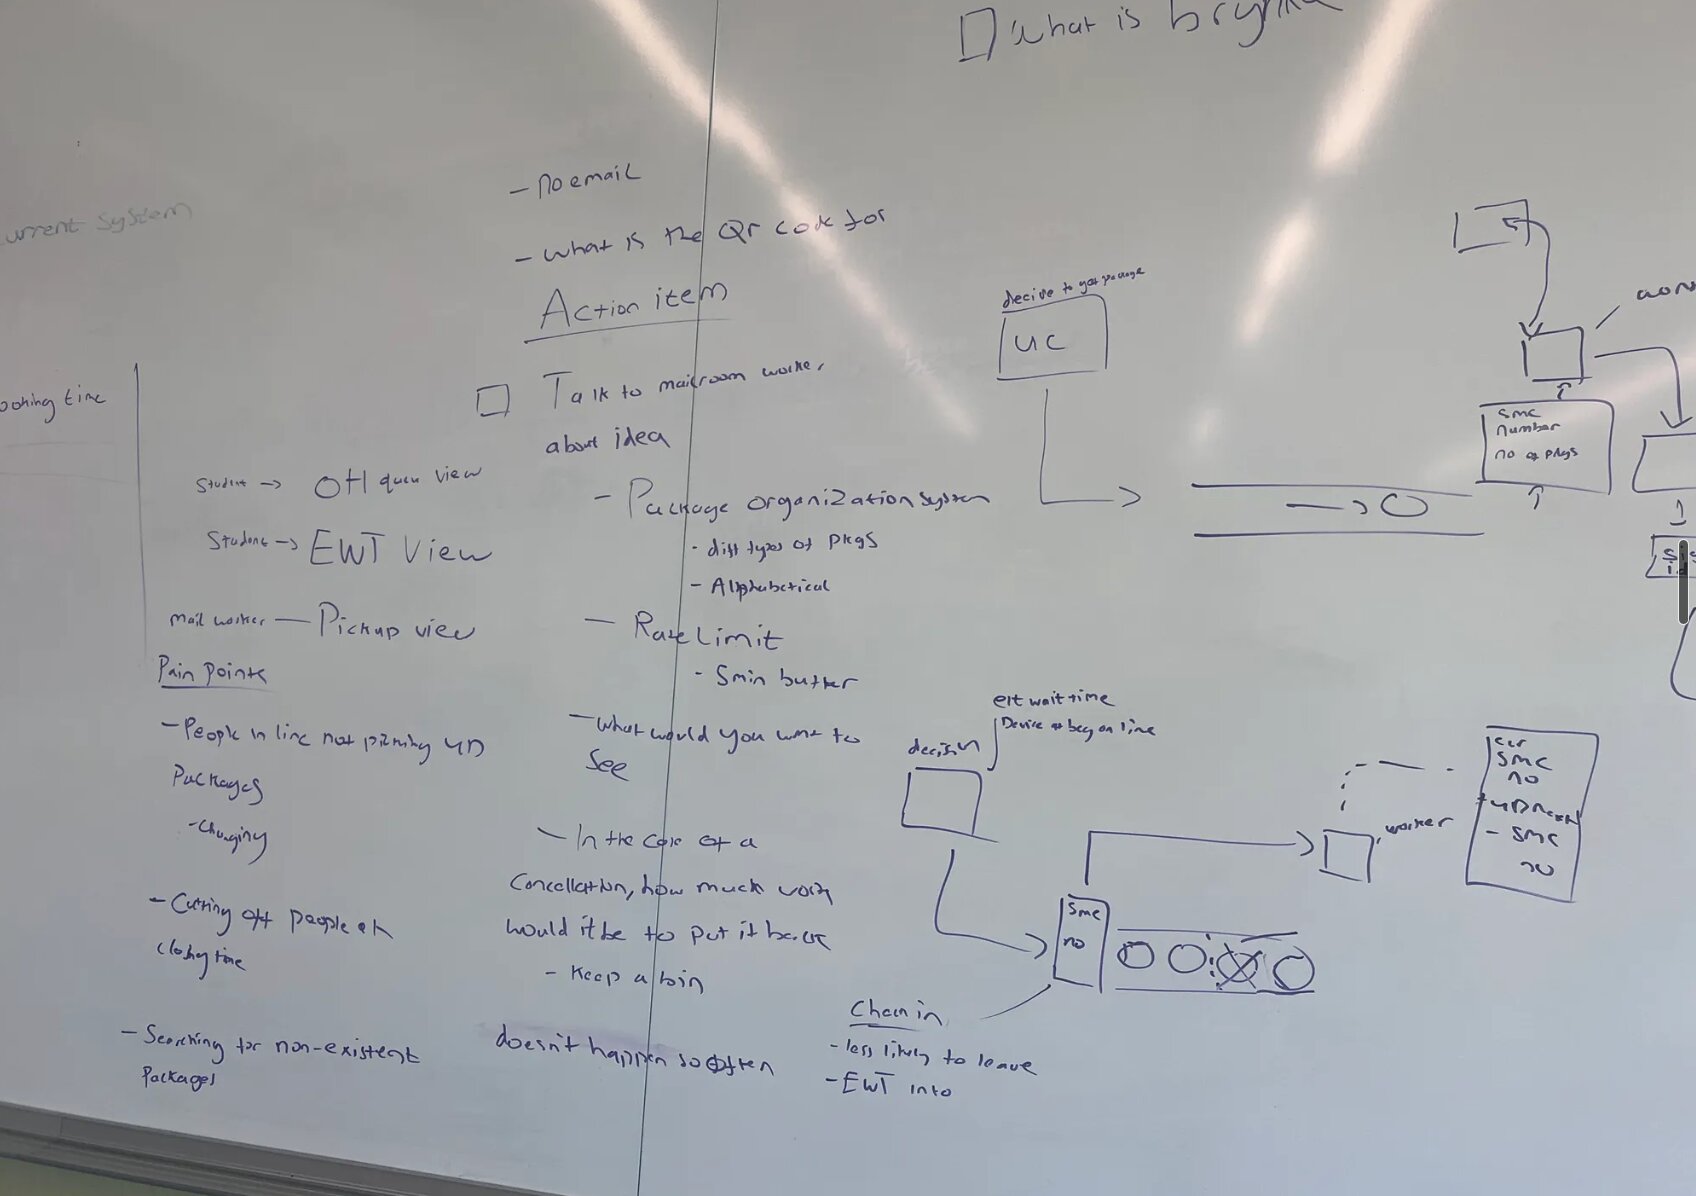 What is
- no email
- what is the Qr code for
Action item
Talk to mailroom worker
about idea
- Package organization system
- diff types of pkgs
- Alphabetical
- Rate Limit
- 5min buffer
- what would you want to
see
- In the case of a
Cancellation, how much work
would it be to put it back
- Keep a bin
doesn't happen so often
current system
ooking time
Student -> OH queu view
Student -> EWT View
mail worker - Pickup view
Pain Points
- People in line not picking up
Packages
- Changing
- Cutting off people at
closing time
- Searching for non-existent
Packages
decide to get package
UC
smc
number
no of pkgs
est wait time
Device at beg on line
decision
smc
no
Check in
- less likely to leave
- EWT info
worker
cur
smc
no
up next
- smc
no